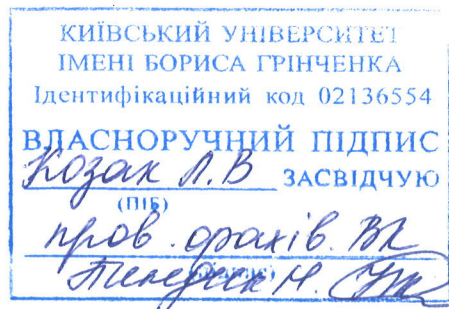 КИЇВСЬКИЙ УНІВЕРСИТЕТ
ІМЕНІ БОРИСА ГРІНЧЕНКА
Ідентифікаційний код 02136554
ВЛАСНОРУЧНИЙ ПІДПИС
Козак Л.В ЗАСВІДЧУЮ
(ПІБ)
пров. фахів. ВК
Н.